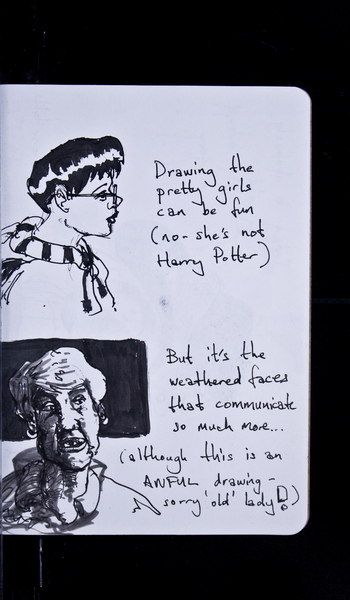 Drawing the
pretty girls
can be fun
(no- she's not
Harry Potter)
But it's the
weathered faces
that communicate
so much more...
(although this is an
AWFUL drawing -
sorry 'old' lady!)